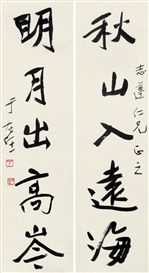 秋山入遠海
志蓬仁兄正之
明月出高岑
于右任